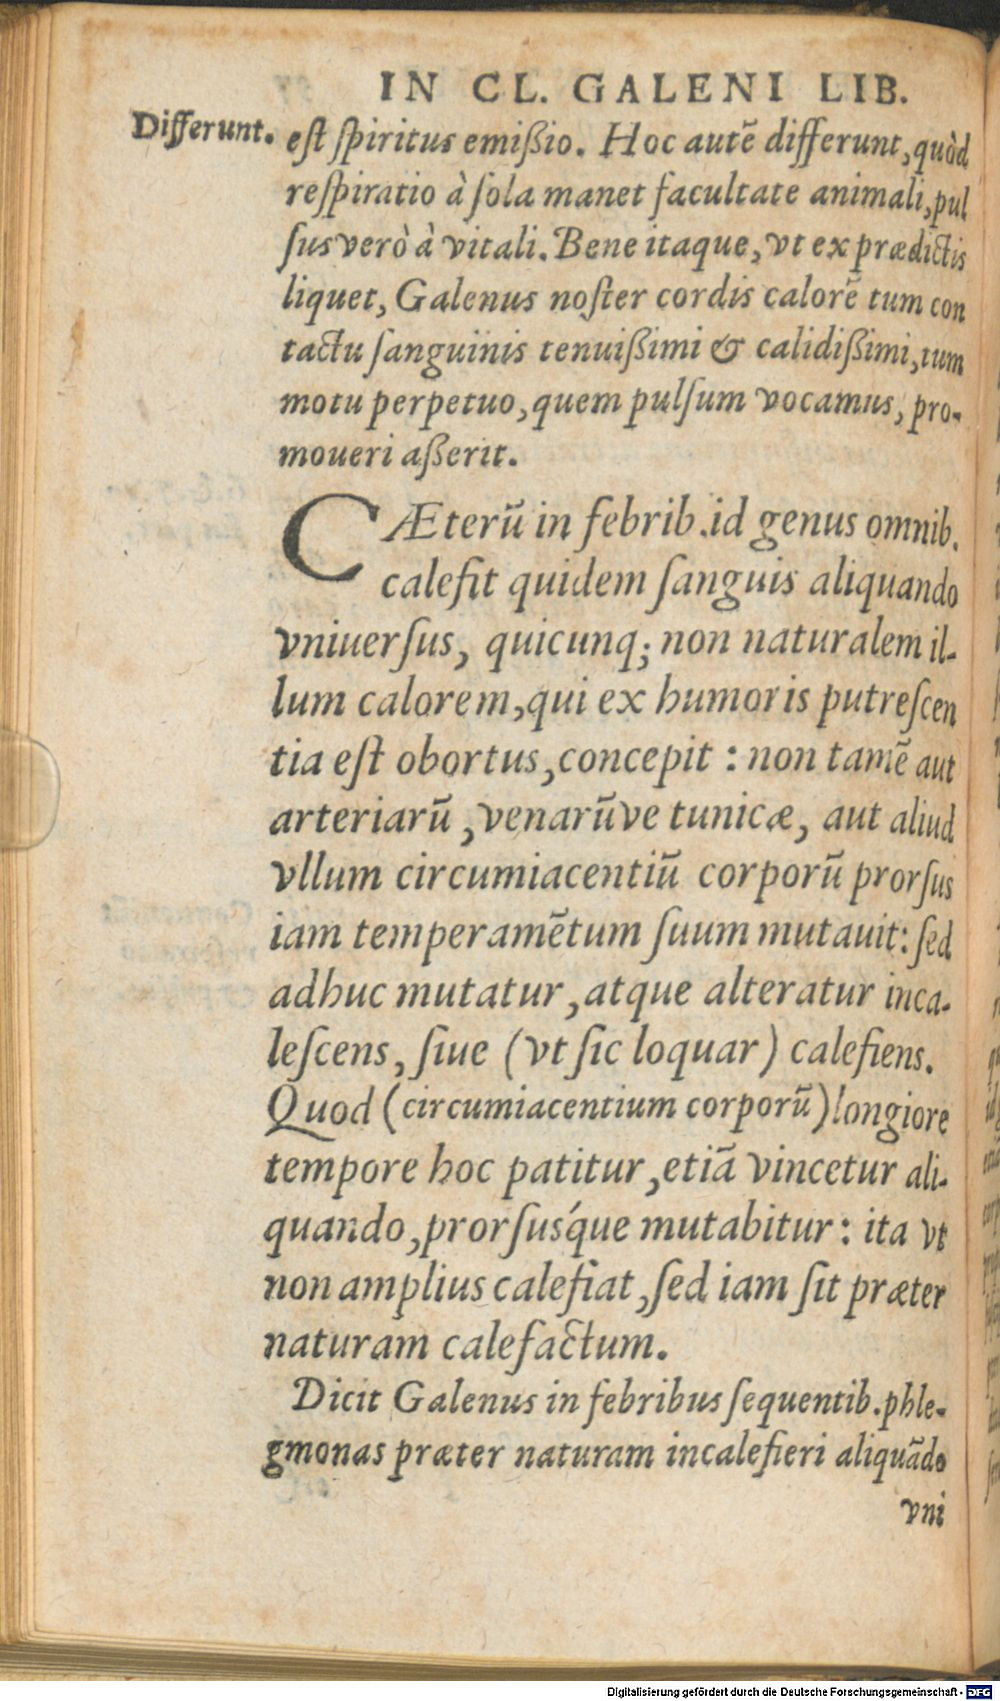 IN CL. GALENI LIB.
Differunt.
est spiritus emißio. Hoc autē differunt, quòd
respiratio à sola manet facultate animali, pul
sus verò à vitali. Bene itaque, vt ex prædictis
liquet, Galenus noster cordis calorē tum con
tactu sanguinis tenuißimi & calidißimi, tum
motu perpetuo, quem pulsum vocamus, pro-
moueri aßerit.
CÆterū in febrib. id genus omnib.
calefit quidem sanguis aliquando
vniuersus, quicunq; non naturalem il-
lum calorem, qui ex humoris putrescen
tia est obortus, concepit: non tamē aut
arteriarū, venarūve tunicæ, aut aliud
vllum circumiacentiū corporū prorsus
iam temperamētum suum mutauit: sed
adhuc mutatur, atque alteratur inca-
lescens, siue (vt sic loquar) calefiens.
Quod (circumiacentium corporū) longiore
tempore hoc patitur, etiā vincetur ali-
quando, prorsusq́ue mutabitur: ita vt
non amplius calefiat, sed iam sit præter
naturam calefactum.
Dicit Galenus in febribus sequentib. phle-
gmonas præter naturam incalefieri aliquādo
vni
Digitalisierung gefördert durch die Deutsche Forschungsgemeinschaft - DFG